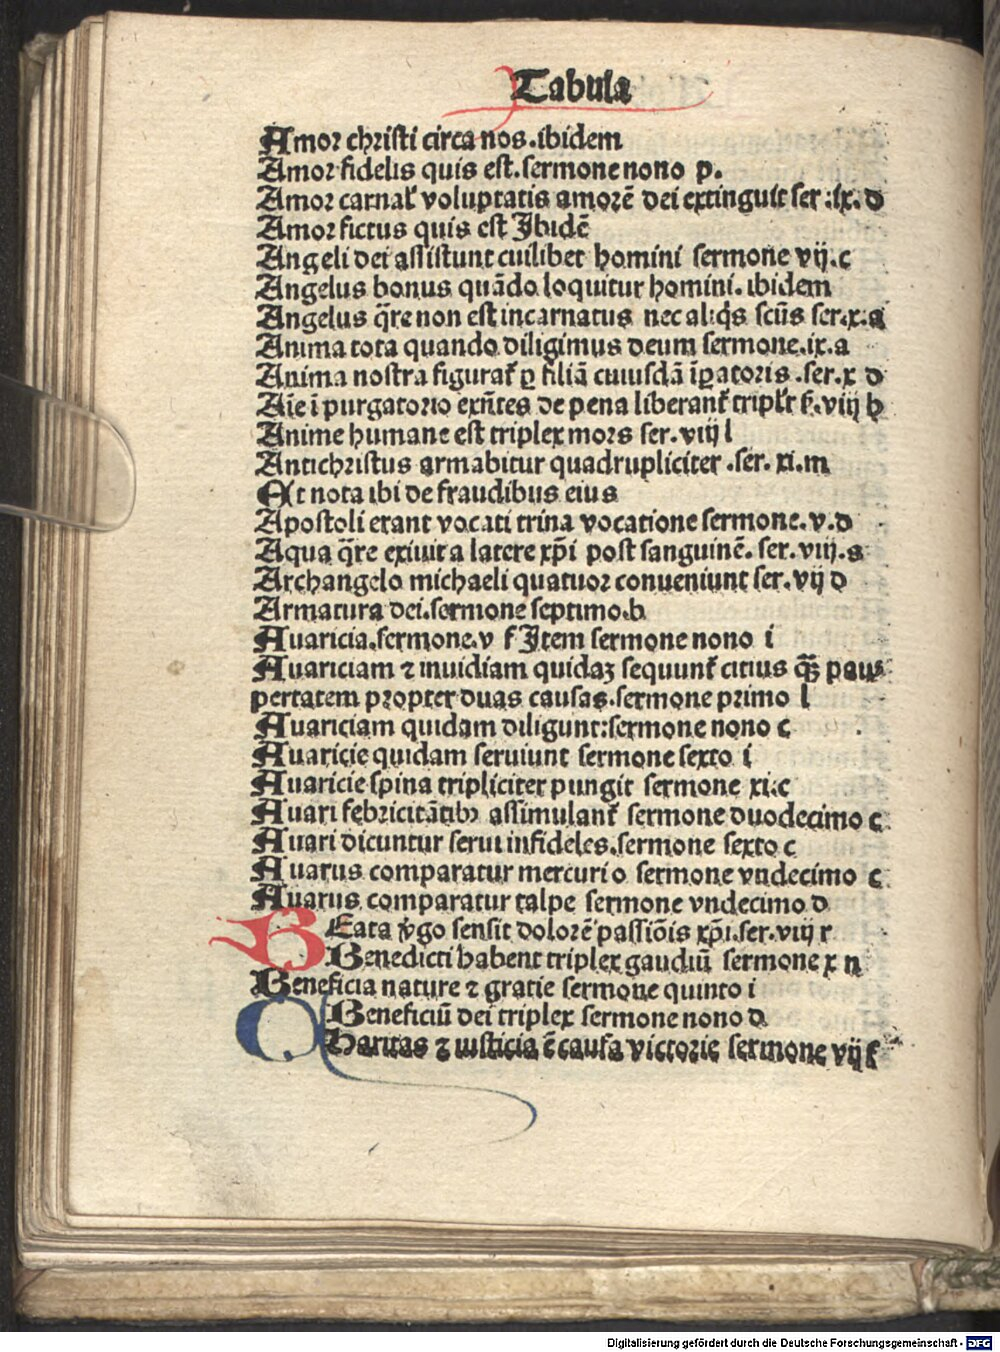 Tabula
Amor christi circa nos. ibidem
Amor fidelis quis est. sermone nono p.
Amor carnaľ voluptatis amorē dei extinguit ser: ix. d
Amor fictus quis est Ibidē
Angeli dei assistunt cuilibet homini sermone vij. c
Angelus bonus quādo loquitur homini. ibidem
Angelus q̄re non est incarnatus nec aliq̄s scūs ser. x. a
Anima tota quando diligimus deum sermone. ix. a
Anima nostra figurať ꝑ filiā cuiusdā īꝑatoris. ser. x d
Aīe ī purgatorio exn̄tes de pena liberanť tripľr ſ. viij h
Anime humane est triplex mors ser. viij l
Antichristus armabitur quadrupliciter. ser. xi. m
Et nota ibi de fraudibus eius
Apostoli erant vocati trina vocatione sermone. v. d
Aqua q̄re exiuit a latere xp̄i post sanguinē. ser. viij. s
Archangelo michaeli quatuor conueniunt ser. vij d
Armatura dei. sermone septimo. b
Auaricia. sermone. v f Item sermone nono i
Auariciam ⁊ inuidiam quidaꝫ sequunť citius q̄ꝫ pau⸗
pertatem propter duas causas. sermone primo l
Auariciam quidam diligunt: sermone nono c
Auaricie quidam seruiunt sermone sexto i
Auaricie spina tripliciter pungit sermone xi. c
Auari febricitātibꝰ assimulanť sermone duodecimo c
Auari dicuntur serui infideles. sermone sexto c
Auarus comparatur mercurio sermone vndecimo c
Auarus comparatur talpe sermone vndecimo d
BEata v̄go sensit dolorē passiōis xp̄i. ser. viij r
Benedicti habent triplex gaudiū sermone x n
Beneficia nature ⁊ gratie sermone quinto i
Beneficiū dei triplex sermone nono d
CHaritas ⁊ iusticia ē causa victorie sermone vij f
Digitalisierung gefördert durch die Deutsche Forschungsgemeinschaft - DFG